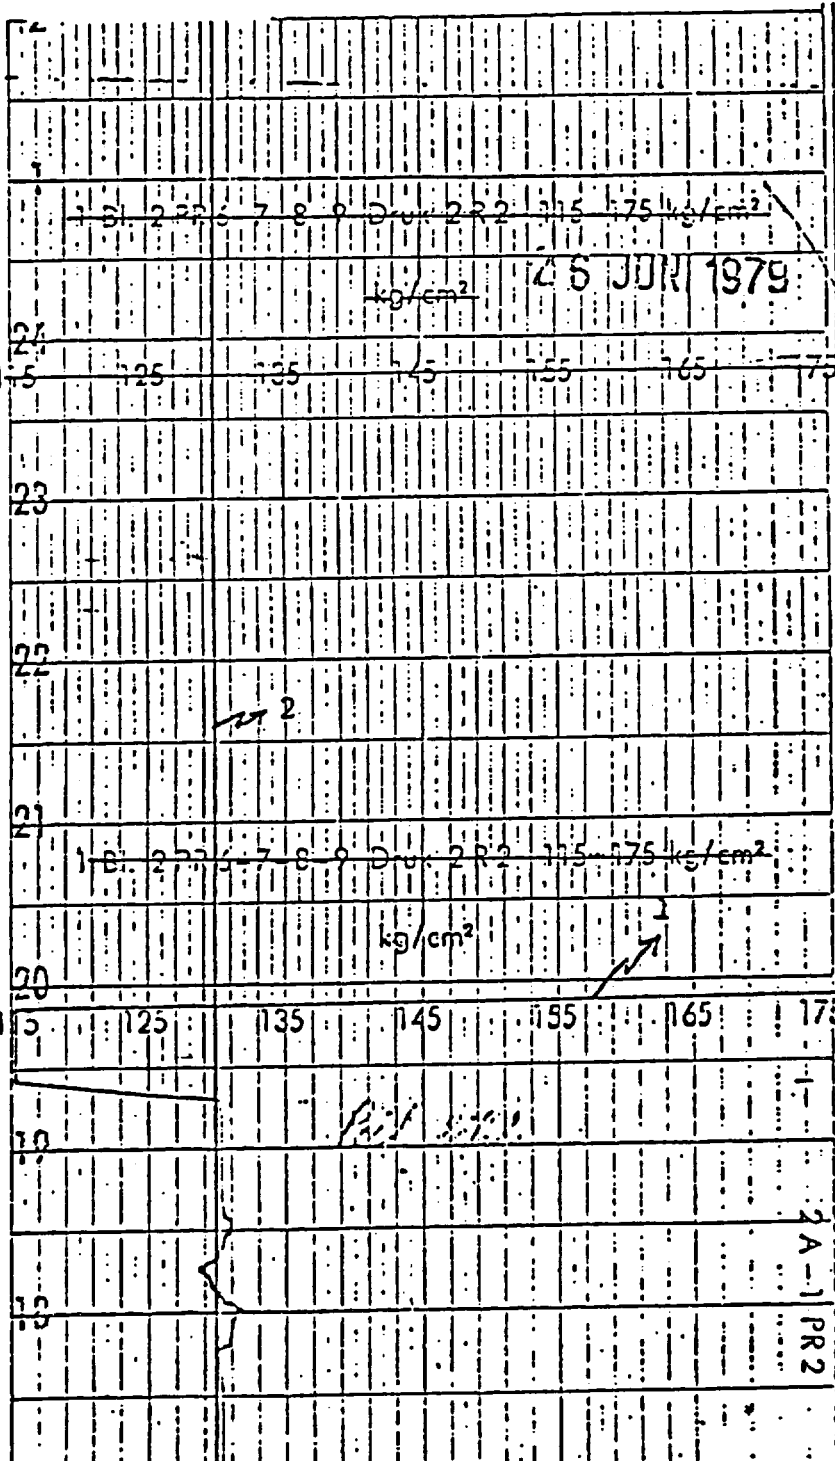 1 BL 2 PR 6-7-8-9 Druk 2R2 115-175 kg/cm²
kg/cm²
26 JUN 1979
24
115 125 135 145 155 165 175
23
22
2
21
1 BL 2 PR 6-7-8-9 Druk 2R2 115-175 kg/cm²
kg/cm²
1
20
115 125 135 145 155 165 175
19
18
2A-1 PR2